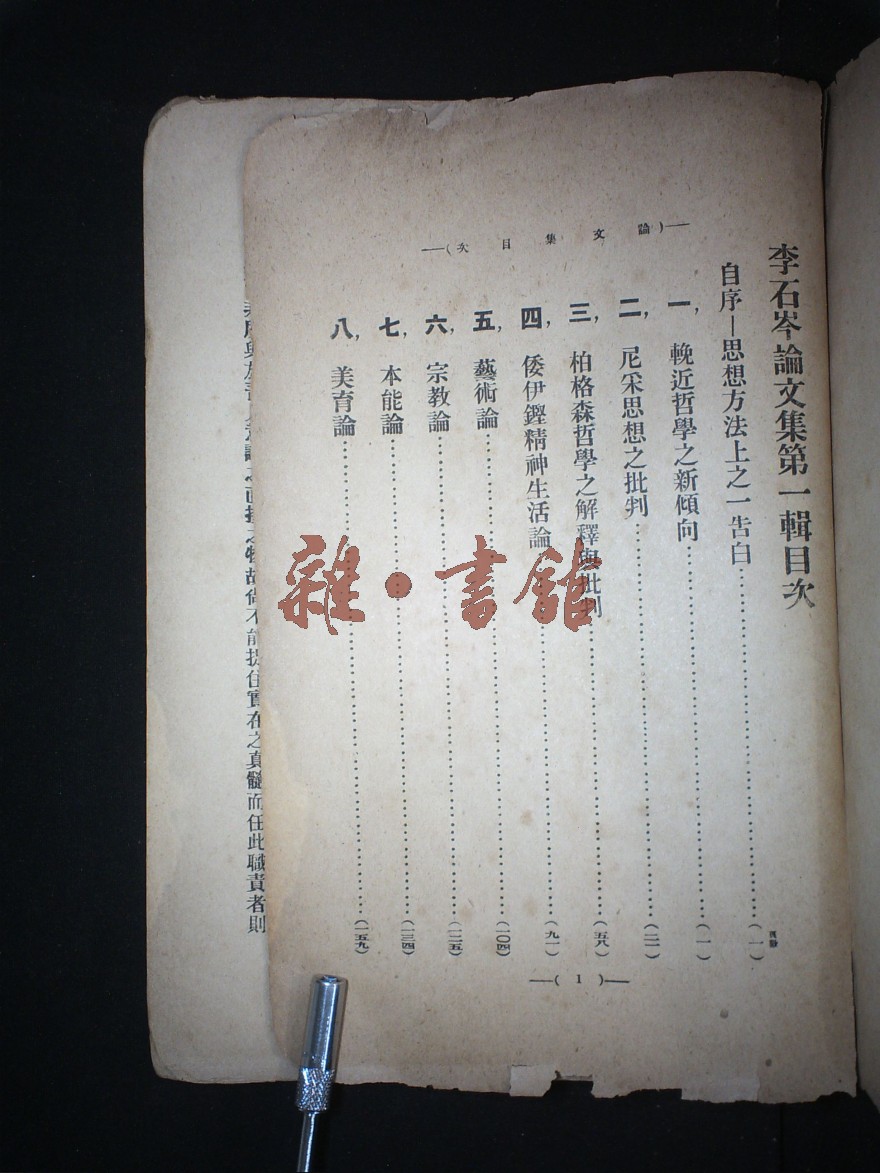 李石岑論文集第一輯目次
自序—思想方法上之一告白…(一)
頁數
—(論文集目次)—
一，輓近哲學之新傾向…(一)
二，尼采思想之批判…(二一)
三，柏格森哲學之解釋與批判…(五八)
四，倭伊鏗精神生活論…(九一)
五，藝術論…(一〇四)
六，宗教論…(一二五)
七，本能論…(一三四)
八，美育論…(一五九)
—(1)—
雜·書館
故尚不能捉住實在之真髓而任此職責者則